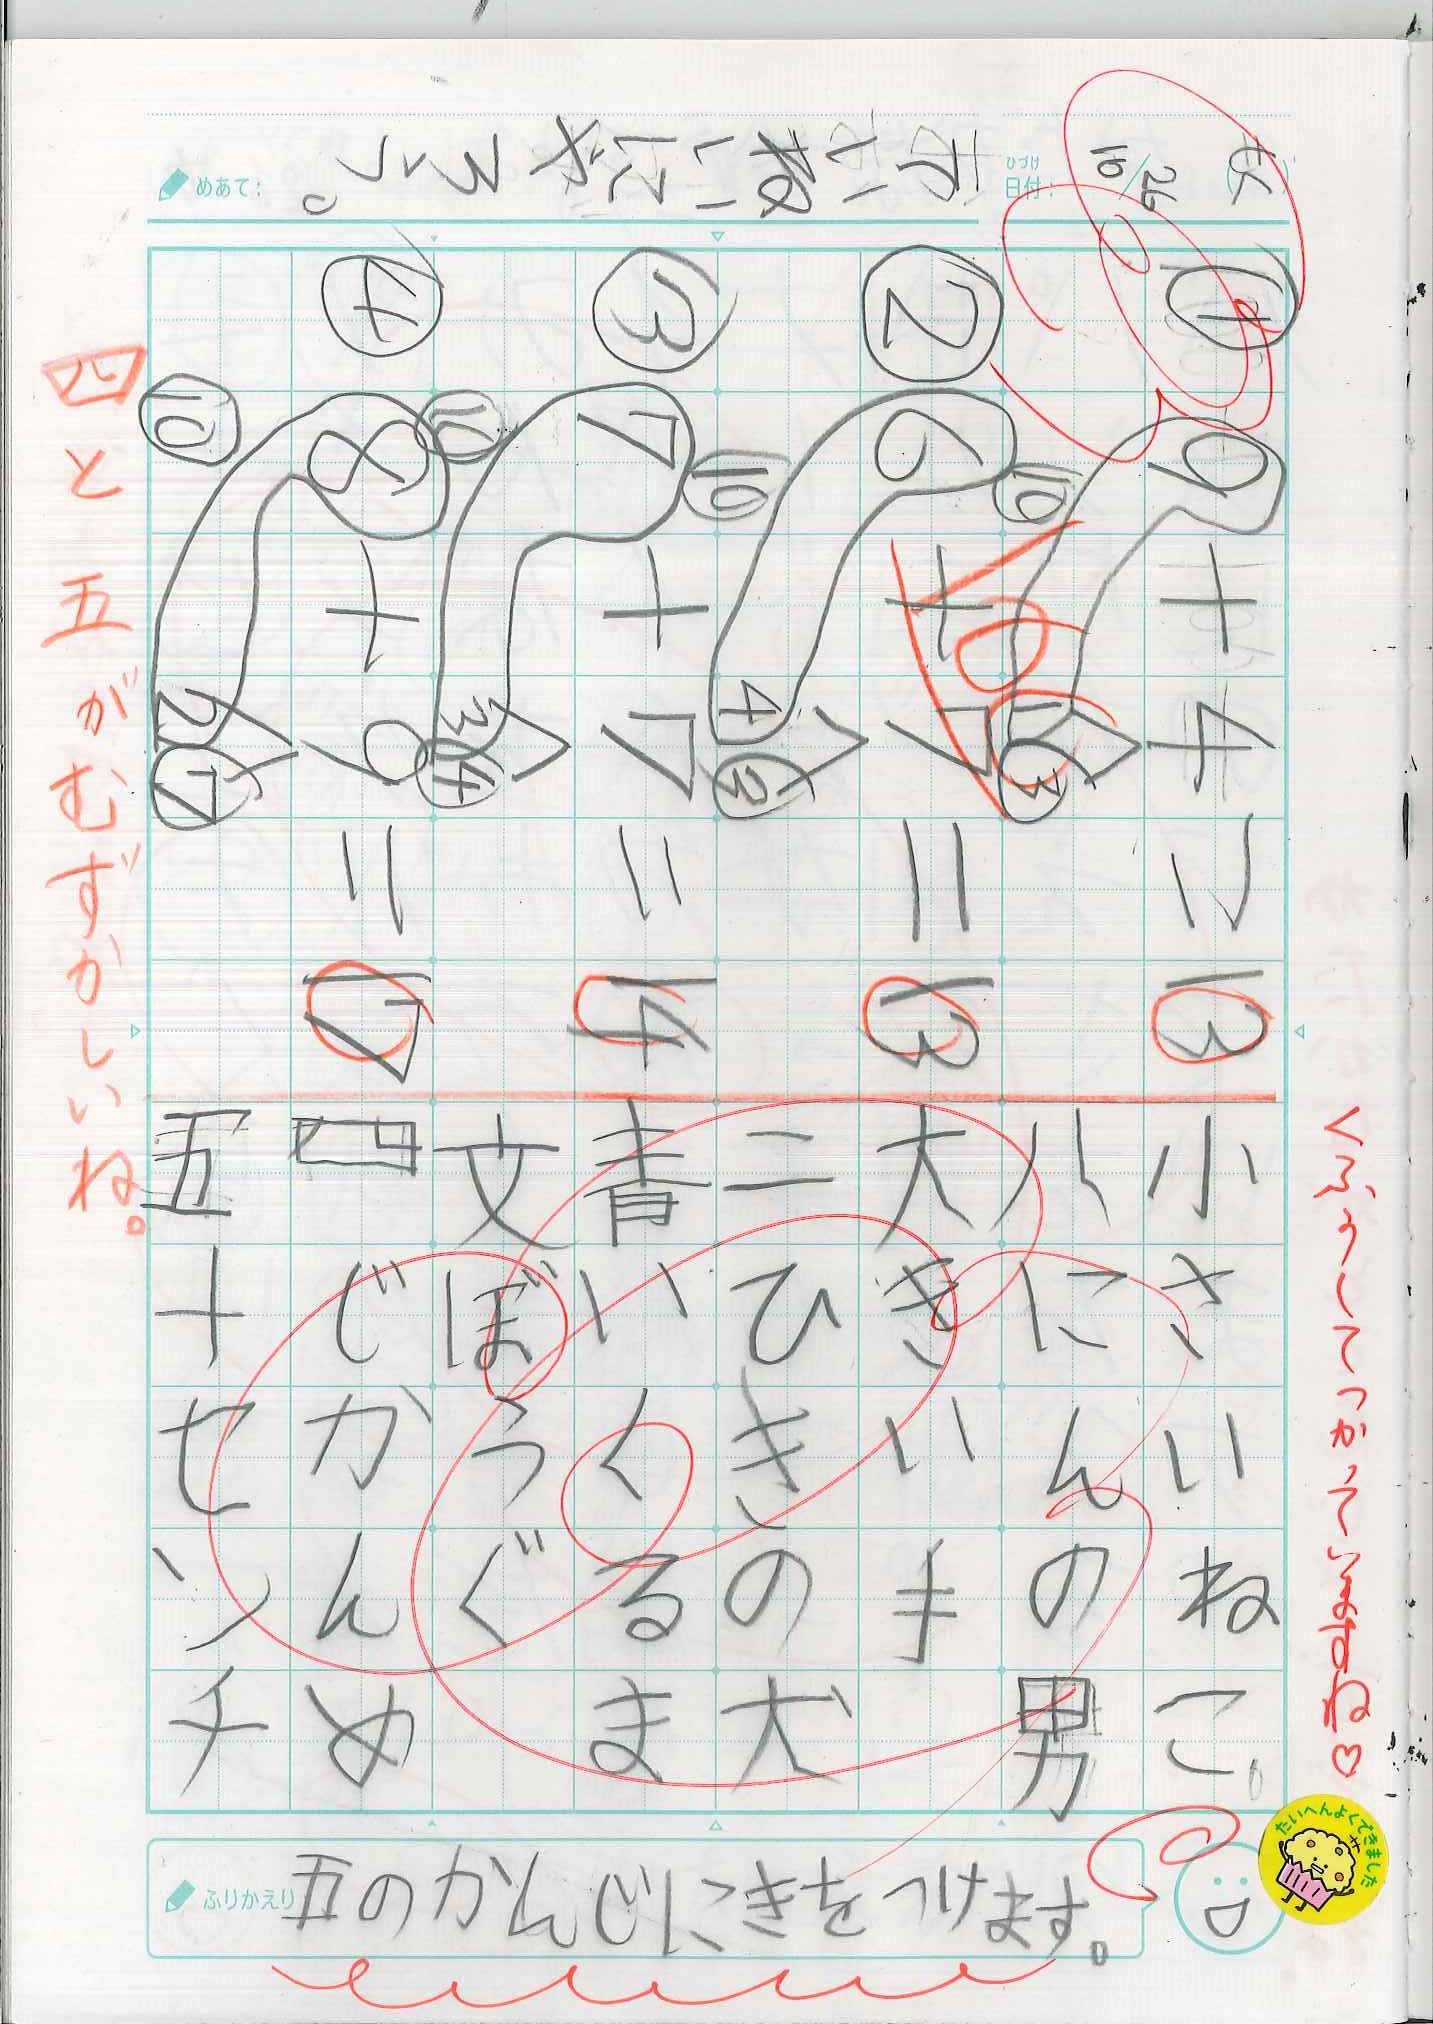 めあて：
ていねいにやろう。
ひづけ
日付：
10/26
① 9+4=13
10
1 3
② 6+7=13
10
4 3
③ 7+7=14
10
3 4
④ 8+9=17
10
2 7
小さいねこ。
八にんの男
大きい手
二ひきの犬
青いくるま
文ぼうぐ
四じかんめ
五十センチ
四と五がむずかしいね。
くふうしてつかっていますね♡
たいへんよくできました
ふりかえり
五のかんじにきをつけます。